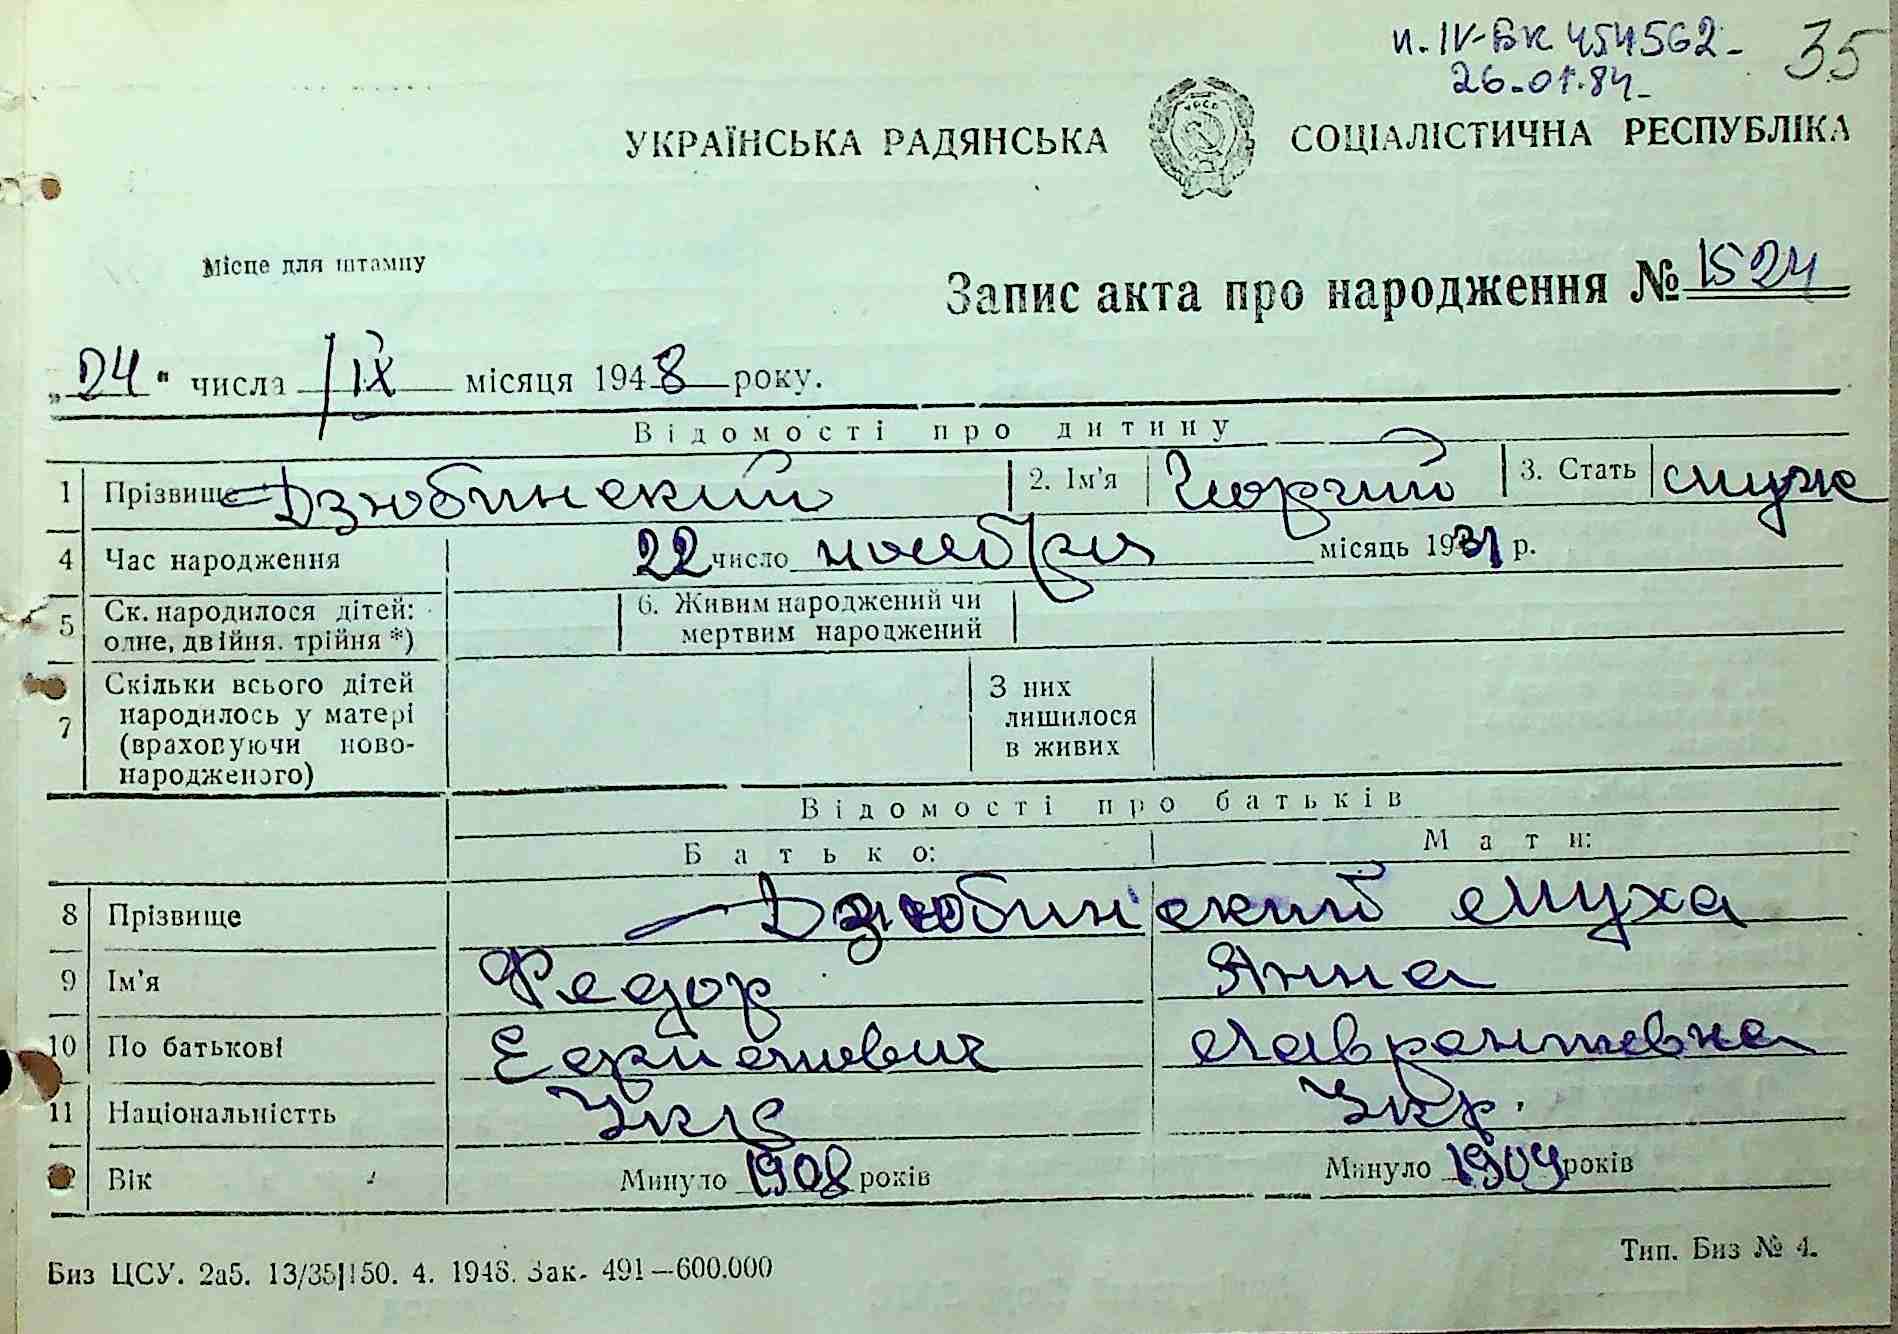 п. IV-БК 454562-
35
26-01.84-
УКРАЇНСЬКА РАДЯНСЬКА СОЦІАЛІСТИЧНА РЕСПУБЛІКА
Місце для штампу
Запис акта про народження № 1524
„24" числа IX місяця 1948 року.
Відомості про дитину
1 Прізвище Дзюбинский 2. Ім'я Георгий 3. Стать муж
4 Час народження 22 число ноября місяць 1931 р.
5 Ск. народилося дітей: одне, двійня, трійня *) 6. Живим народжений чи мертвим народжений
7 Скільки всього дітей народилось у матері (враховуючи ново-народженого) З них лишилося в живих
Відомості про батьків
Батько: Мати:
8 Прізвище Дзюбинский Муха
9 Ім'я Федор Анна
10 По батькові Лаврентевна
11 Національністть Укр Укр.
Вік Минуло 1908 років Минуло 1904 років
Биз ЦСУ. 2а5. 13/35|150. 4. 1948. Зак. 491—600.000
Тип. Биз № 4.